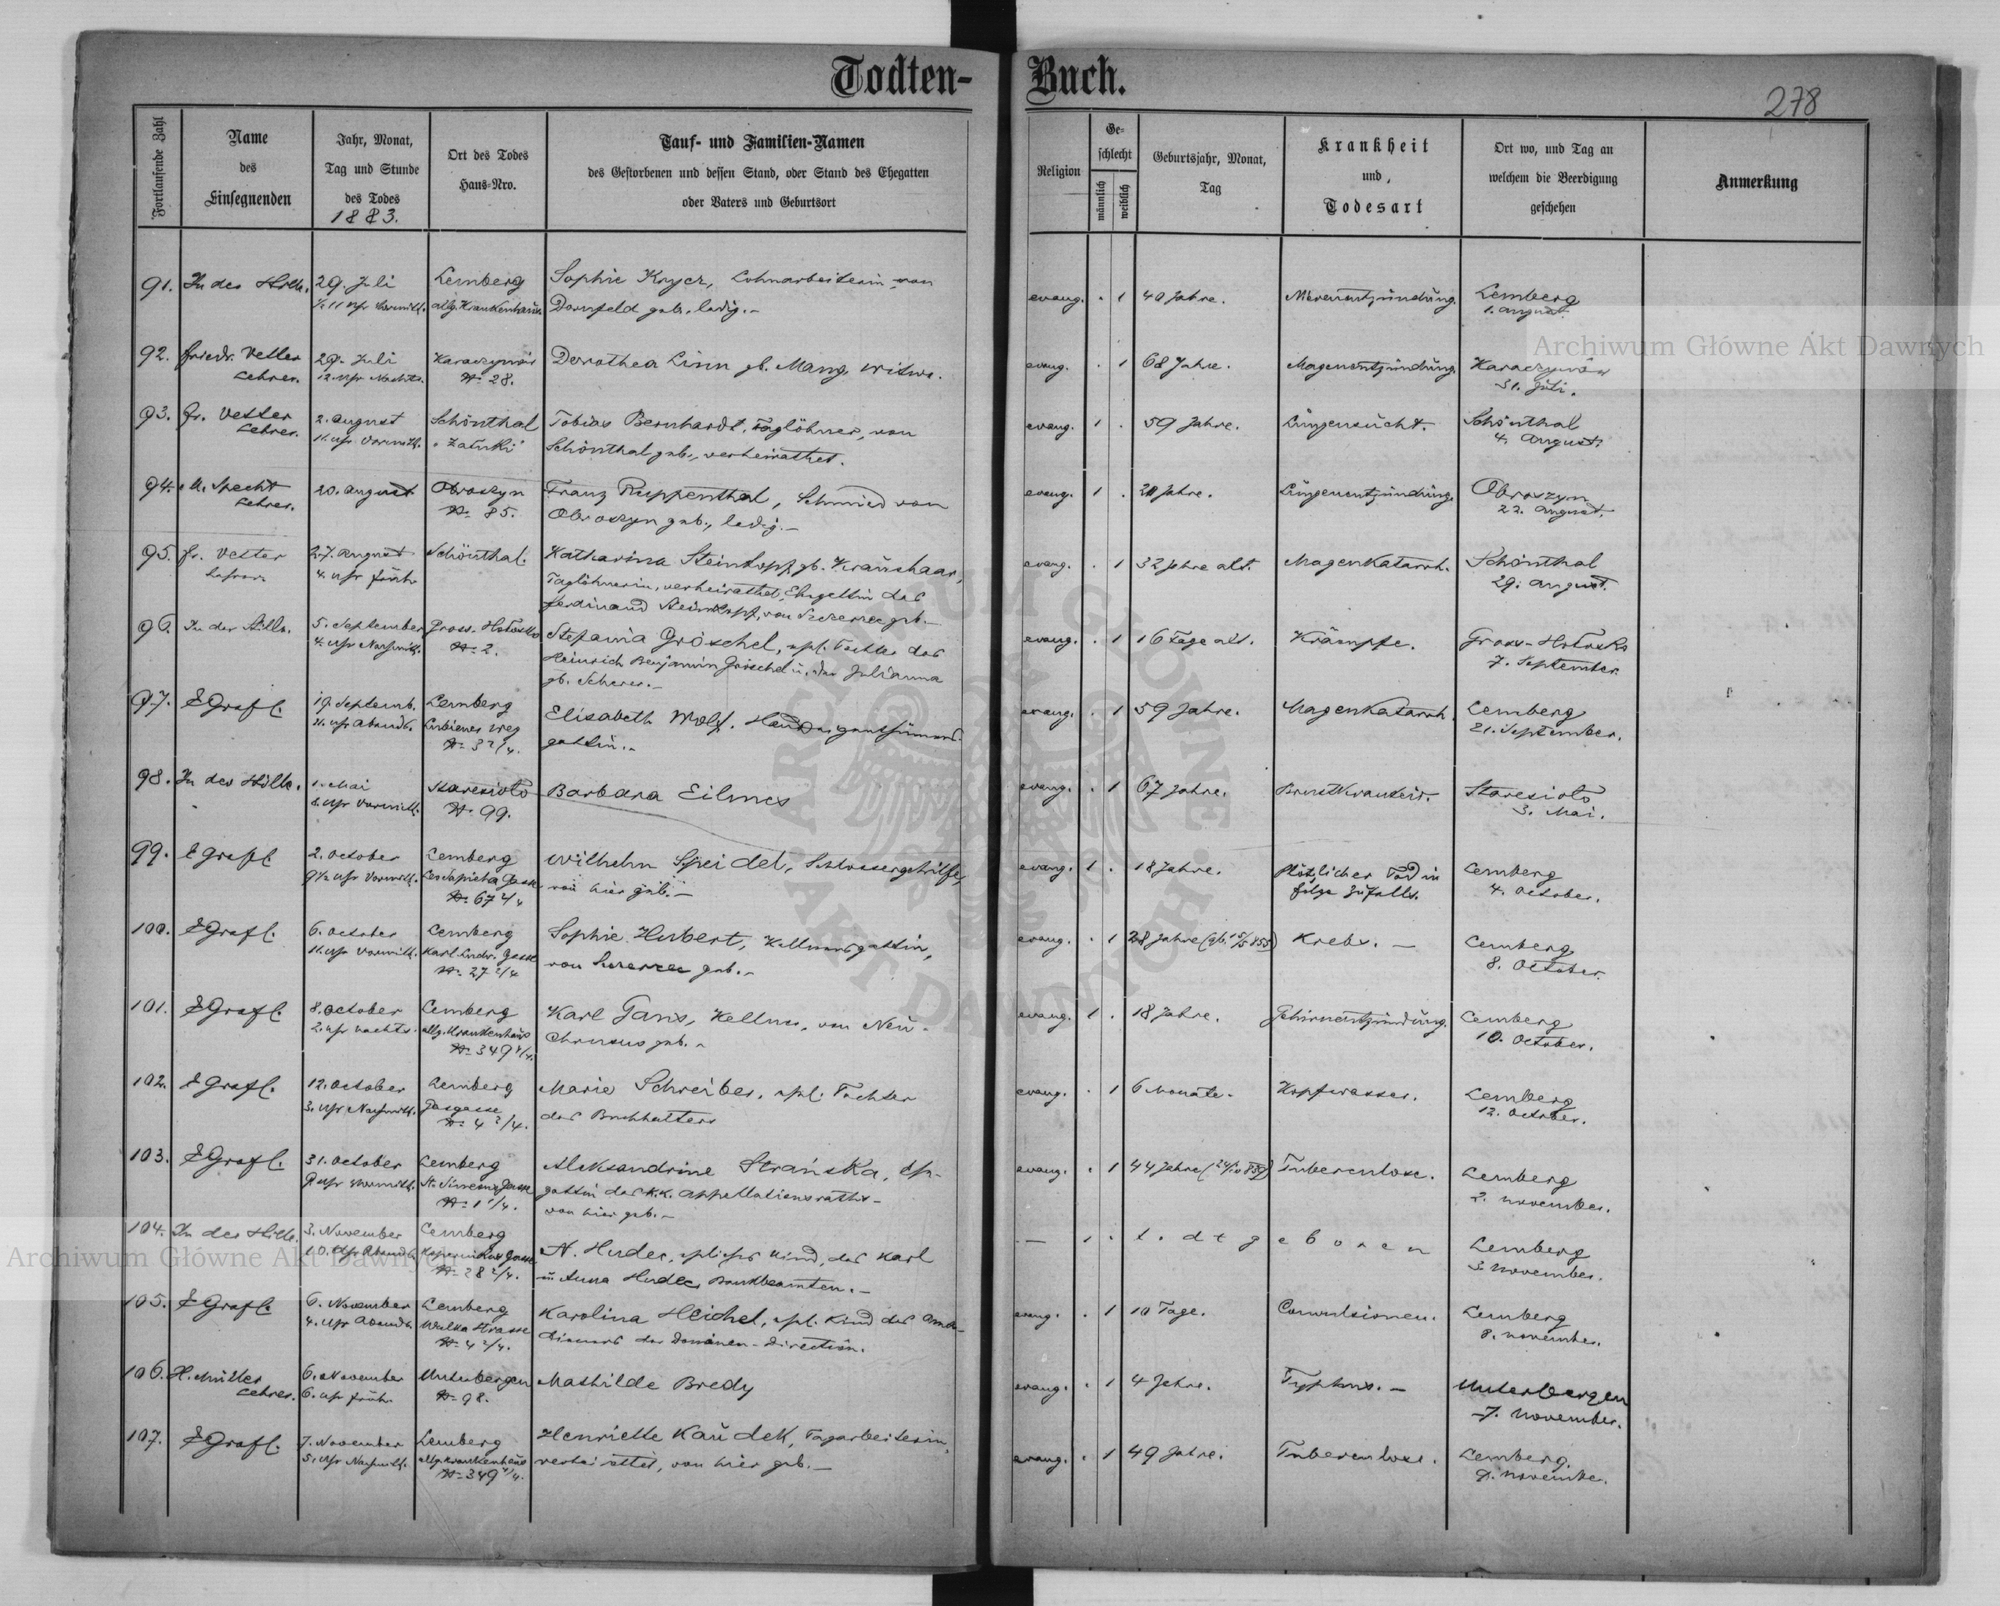 Todten-Buch.
278
Fortlaufende Zahl
Name
des
Einsegnenden
Jahr, Monat,
Tag und Stunde
des Todes
1883.
Ort des Todes
Haus-Nro.
Tauf- und Familien-Namen
des Gestorbenen und dessen Stand, oder Stand des Ehegatten
oder Vaters und Geburtsort
Religion
Ge-
schlecht
männlich
weiblich
Geburtsjahr, Monat,
Tag
Krankheit
und
Todesart
Ort wo, und Tag an
welchem die Beerdigung
geschehen
Anmerkung
91. In der Stille. 29. Juli Lemberg Sophie Krycz, Lohnarbeiterin von evang. . 1 40 Jahre. Nierenentzündung. Lemberg
½ 11 Uhr Vormitt. allg. Krankenhaus Dornfeld geb., ledig.- 1. August.
92. Friedr. Vetter 29. Juli Karaczynów Dorothea Linn gb. Mang, Witwe. evang. . 1 68 Jahre. Magenentzündung. Karaczynów
Lehrer. 12. Uhr Nachts. N. 28. 31. Juli.
93. Fr. Vetter 2. August Schönthal Tobias Bernhardt, Taglöhner, von evang. 1 . 59 Jahre. Lungensucht. Schönthal
Lehrer. 11. Uhr Vormitt. Schönthal geb., verheirathet. 4. August.
94. M. Specht 20. August Obroszyn Franz Ruppenthal, Schmied von evang. 1 . Jahre. Lungenentzündung. Obroszyn
Lehrer. N. 85. Obroszyn geb., ledig.- 22. August.
95. Fr. Vetter 27. August Schönthal. Katharina Steinkopf, gb. Kraushaar, evang. . 1 32 Jahre alt. Magenkatarrh. Schönthal
Lehrer. 4. Uhr früh. Taglöhnerin, verheirathet, Ehegattin des 29. August.
Ferdinand Steinkopf, von Szczerzec geb.-
96. In der Stille. 5. September Gross-Hołosko Stefania Gröschel, ehl. Tochter des evang. . 1 16 Tage alt. Krämpfe. Gross-Hołosko
4. Uhr Nachmitt. N. 2. Heinrich Benjamin Gröschel u. der Julianna 7. September.
gb. Scherer.-
97. E Grafl. 19. Septemb. Lemberg Elisabeth Wolf. evang. . 1 59 Jahre. Magenkatarrh. Lemberg
11. Uhr Abends. Weg gattin.- 21. September.
N. 3 2/4.
98. In der Stille. 1. Mai Staresioło Barbara Eilmes evang. . 1 67 Jahre. Brustkrankeit. Staresioło
8. Uhr Vormitt. N. 99. 3. Mai.
99. E Grafl. 2. October Lemberg Wilhelm Speidel, Schlossergehilfe, evang. 1 . 18 Jahre. Plötzlicher Tod in Lemberg
9½ Uhr Vormitt. Leo Sapieha Gasse von hier geb.- folge Zufalls. 4. October.
N. 67 2/4
100. E Grafl. 6. October Lemberg Sophie Hubert, Kellnersgattin, evang. . 1 28 Jahre Krebs. - Lemberg
11. Uhr Vormitt. Karl Ludw. Gasse von Szczerzec geb.- 8. October.
N. 27 2/4
101. E Grafl. 8. October Lemberg Karl Gans, Kellner, von Neu- evang. 1 . 18 Jahre. Gehirnentzündung. Lemberg
2. Uhr nachts. allg. Krankenhaus Chrusno geb.- 10. October.
N. 349 4/4.
102. E Grafl. 12. October Lemberg Marie Schreiber, ehl. Tochter evang. . 1 6 Monate. Kopfwasser. Lemberg
3. Uhr Nachmitt. Gasgasse des Buchhalters 12. October.
N. 4 2/4.
103. E Grafl. 31. October Lemberg Aleksandrine Strańska, Eh- evang. . 1 44 Jahre Tuberculose. Lemberg
9 Uhr Vormitt. Gasse gattin des k.k. Appellationsraths- 2. November.
N. 1 1/4. von hier geb.-
104. In der Stille. 3. November Lemberg N. Hudec, eheliches Kind, des Karl - . . todtgeboren Lemberg
10. Uhr Abends. Kopernikus Gasse u. Anna Hudec, Bankbeamten.- 3. November.
N. 28 2/4.
105. E Grafl. 6. November Lemberg Karolina Heichel, ehl. Kind des Amts- evang. . 1 10 Tage. Convulsionen. Lemberg
4. Uhr Abends. Wulka Strasse dieners der Domänen-Direction. 8. November.
N. 4 2/4.
106. H. Müller 6. November Unterbergen Mathilde Bredy evang. . 1 4 Jahre. Typhus. - Unterbergen
Lehrer. 6. Uhr früh. N. 98. 7. November.
107. E Grafl. 7. November Lemberg Henriette Kaudek, Tagarbeiterin, evang. . 1 49 Jahre. Tuberculose. Lemberg.
5. Uhr Nachmitt. allg. Krankenhaus verheirathet, von hier geb.- 9. November.
N. 349 4/4.
Archiwum Główne Akt Dawnych
Archiwum Główne Akt Dawnych
ARCHIWUM GŁÓWNE
AKT DAWNYCH